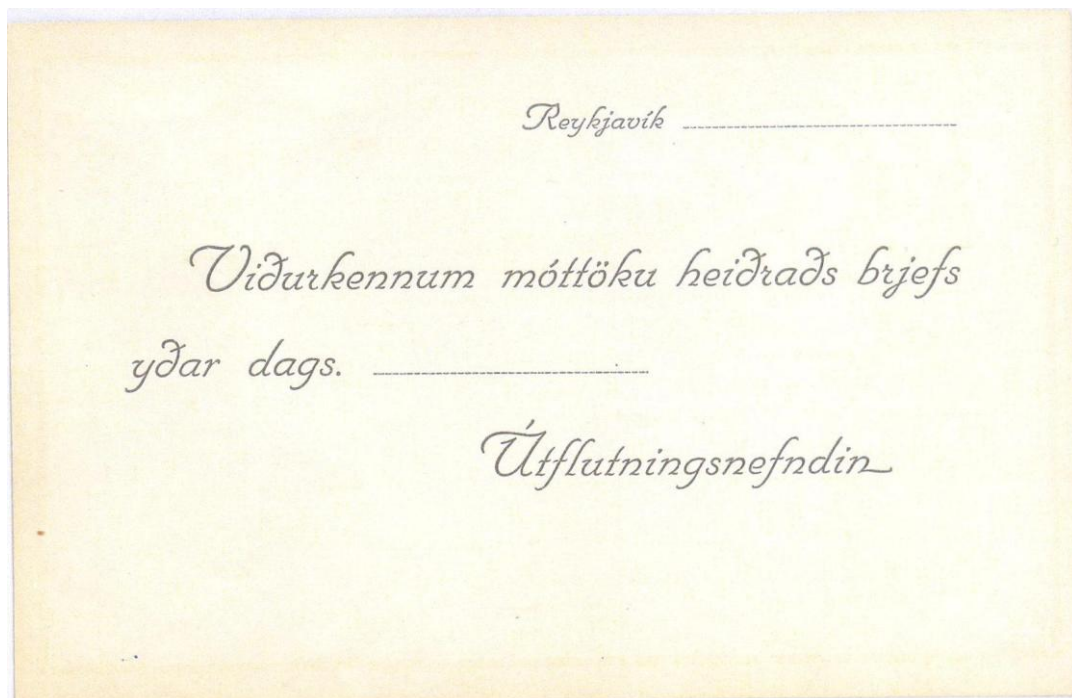 Reykjavík
Viðurkennum móttöku heiðraðs brjefs
yðar dags.
Útflutningsnefndin